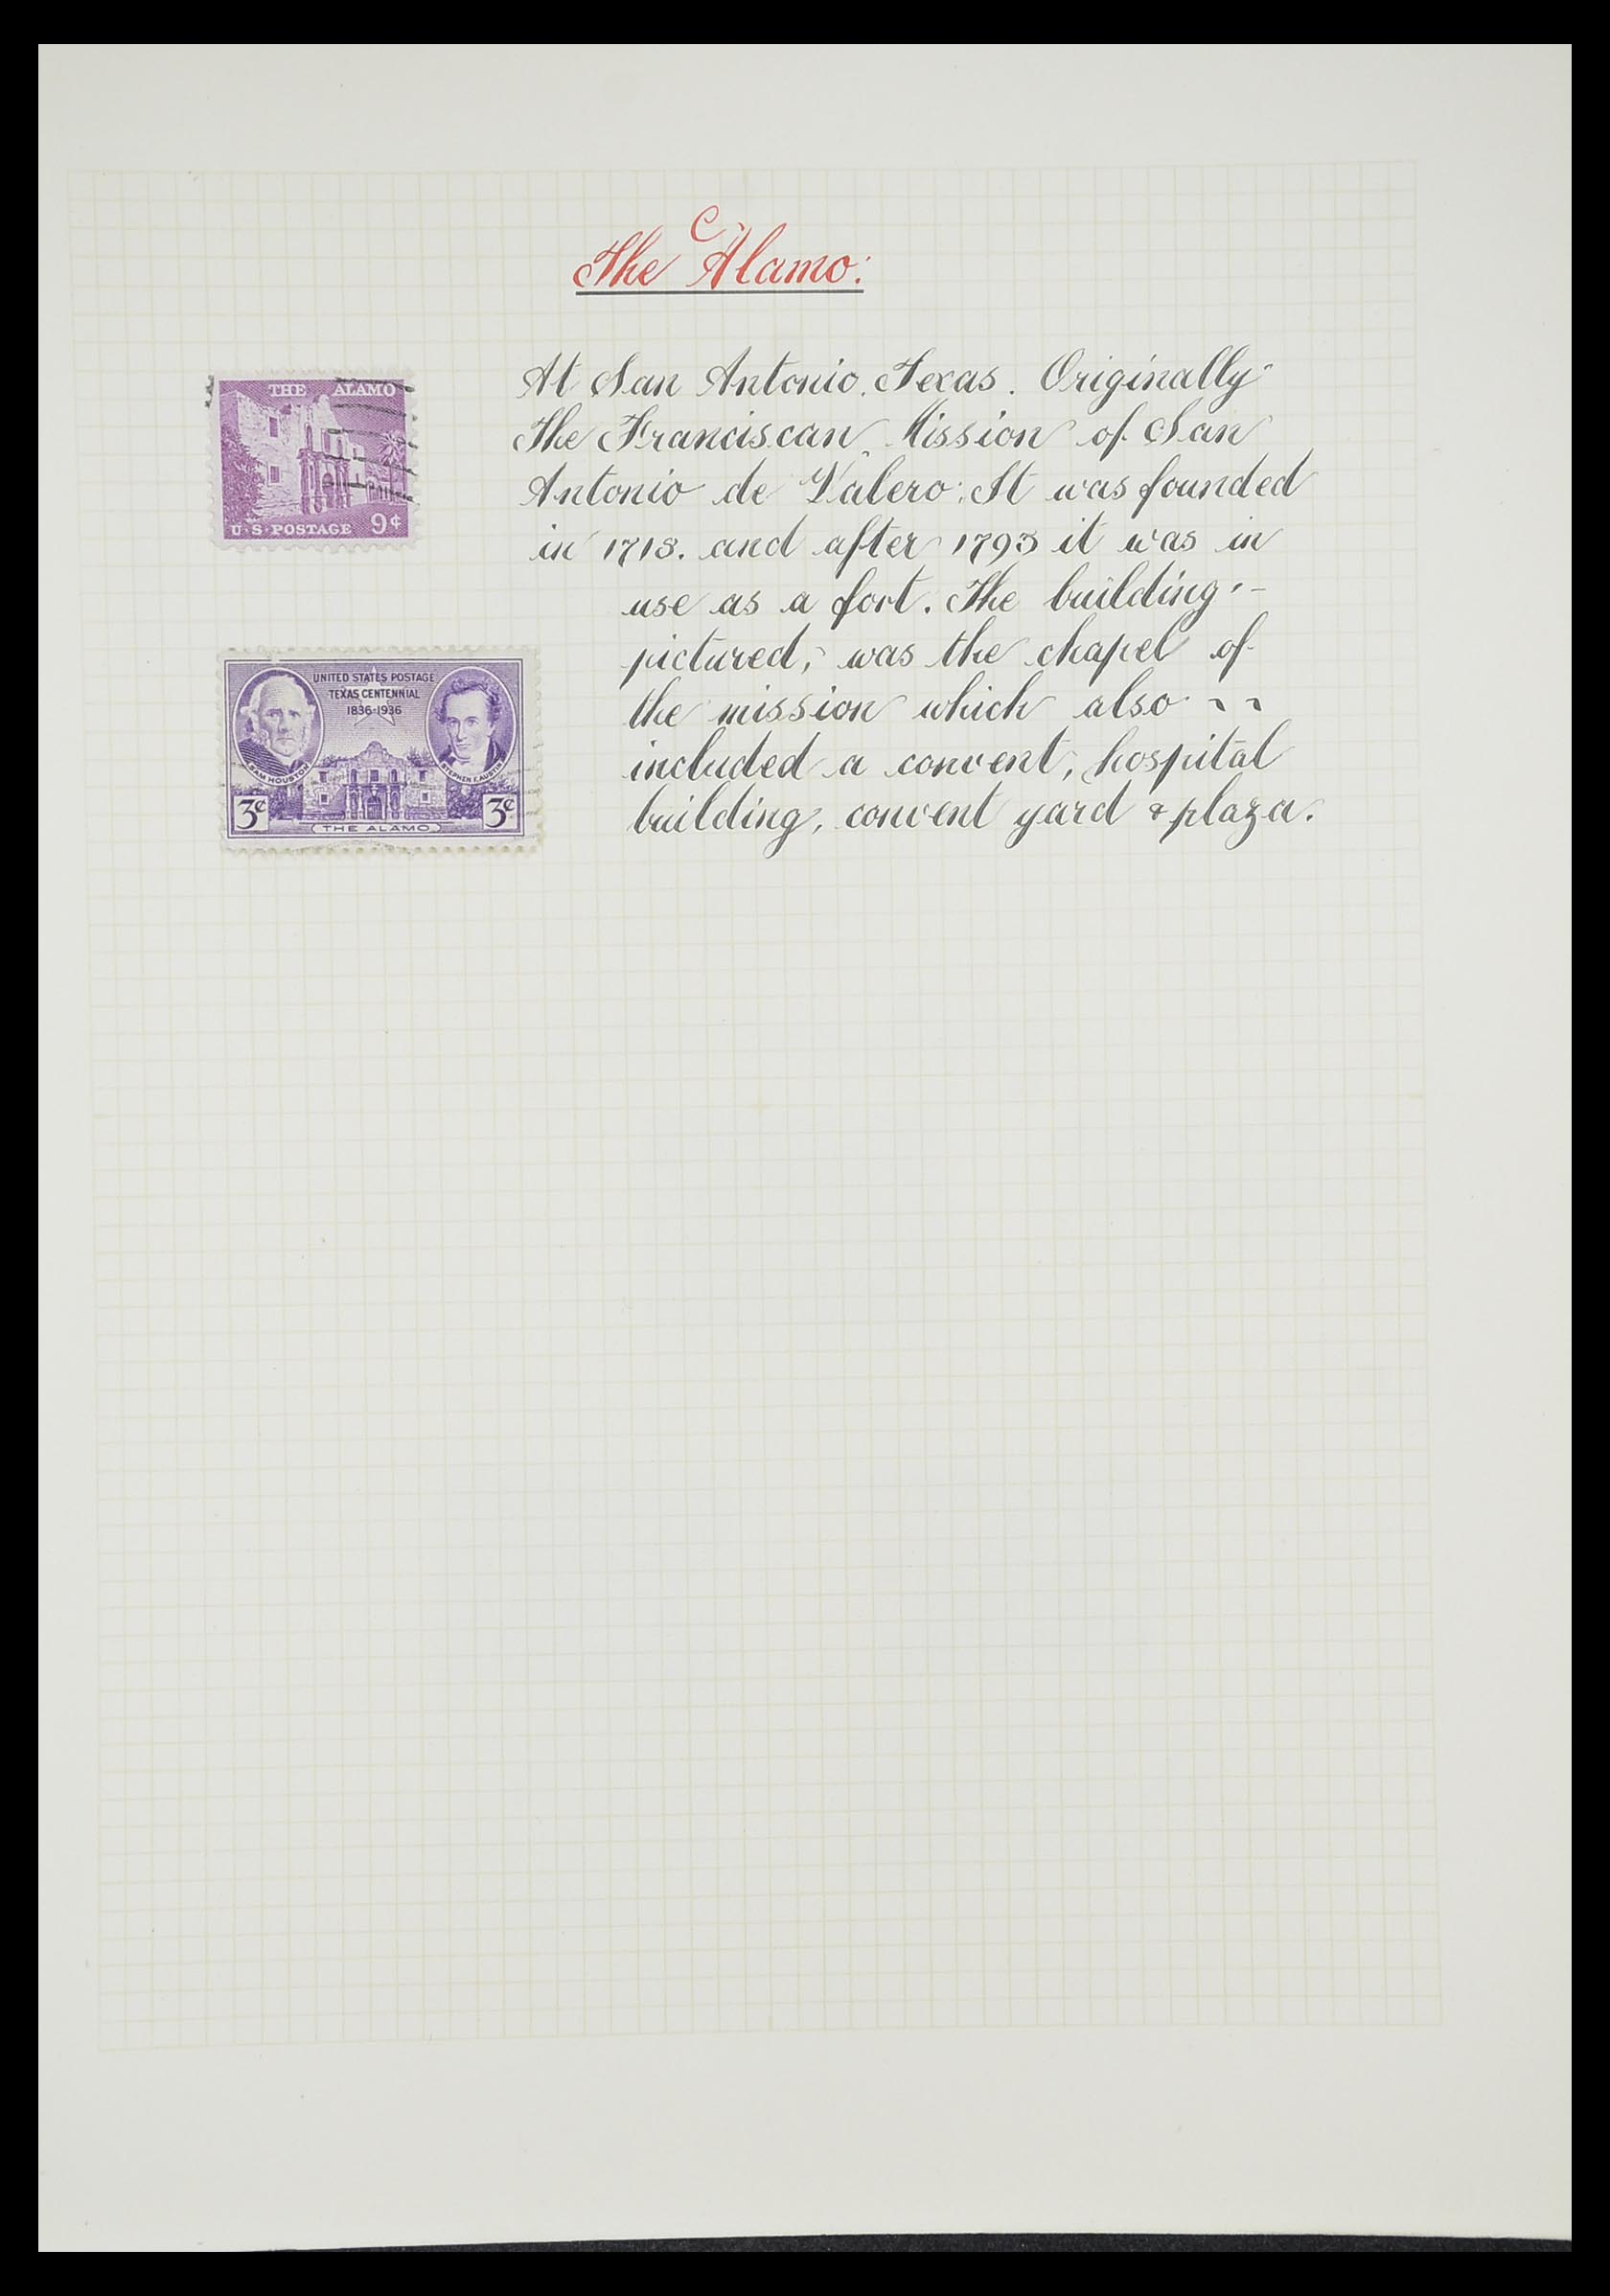 The Alamo:
THE ALAMO
U·S·POSTAGE 9¢
At San Antonio, Texas. Originally
the Franciscan Mission of San
Antonio de Valero. It was founded
in 1718. and after 1793 it was in
use as a fort. The building -
pictured, was the chapel of
the mission which also
included a convent, hospital
building, convent yard & plaza.
UNITED STATES POSTAGE
TEXAS CENTENNIAL
1836-1936
SAM HOUSTON
STEPHEN F. AUSTIN
3¢ 3¢
THE ALAMO